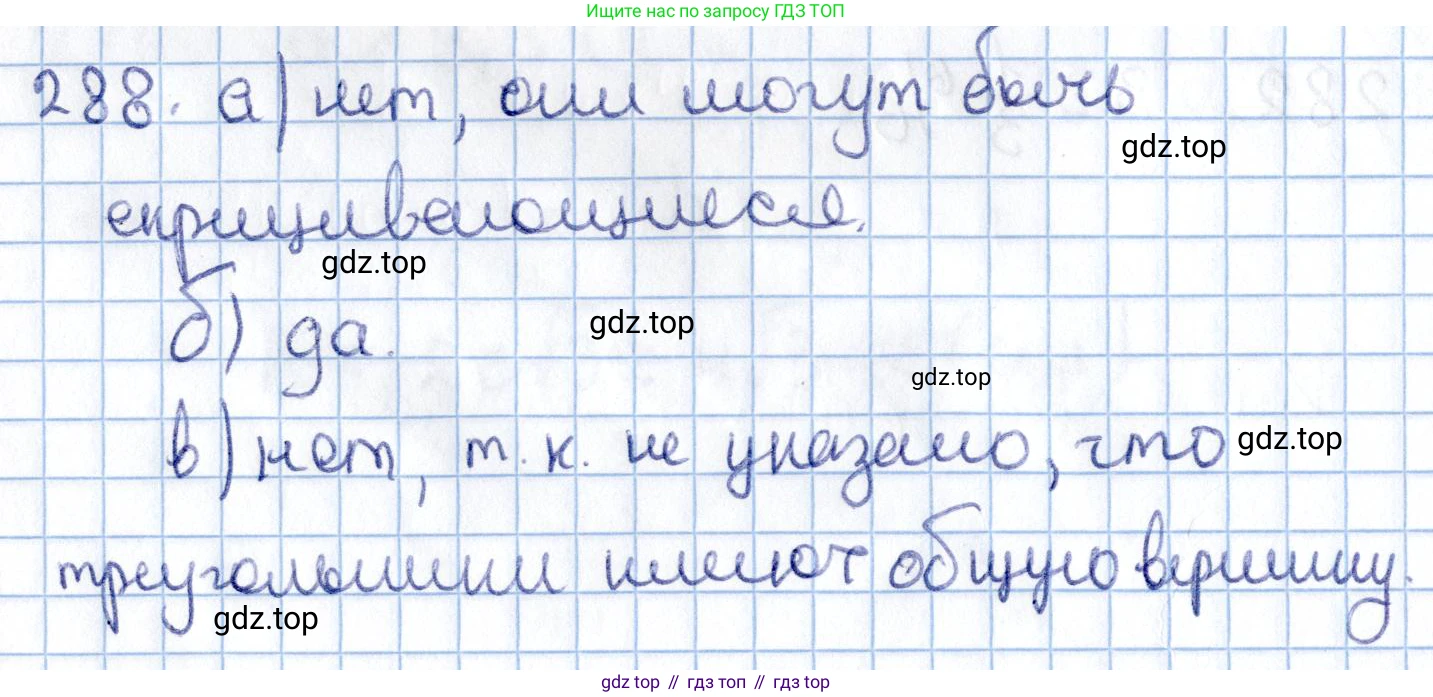 Ищите нас по запросу ГДЗ ТОП
288. а) нет, они могут быть
gdz.top
скрещивающиеся.
gdz.top
б) да.
gdz.top
gdz.top
в) нет, т.к. не указано, что
gdz.top
треугольники имеют общую вершину.
gdz.top
gdz top // гдз топ // гдз top